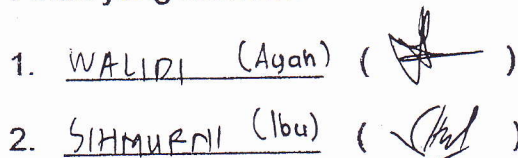 1. WALIDI (Ayah) ( )
2. SIHMURNI (Ibu) ( )